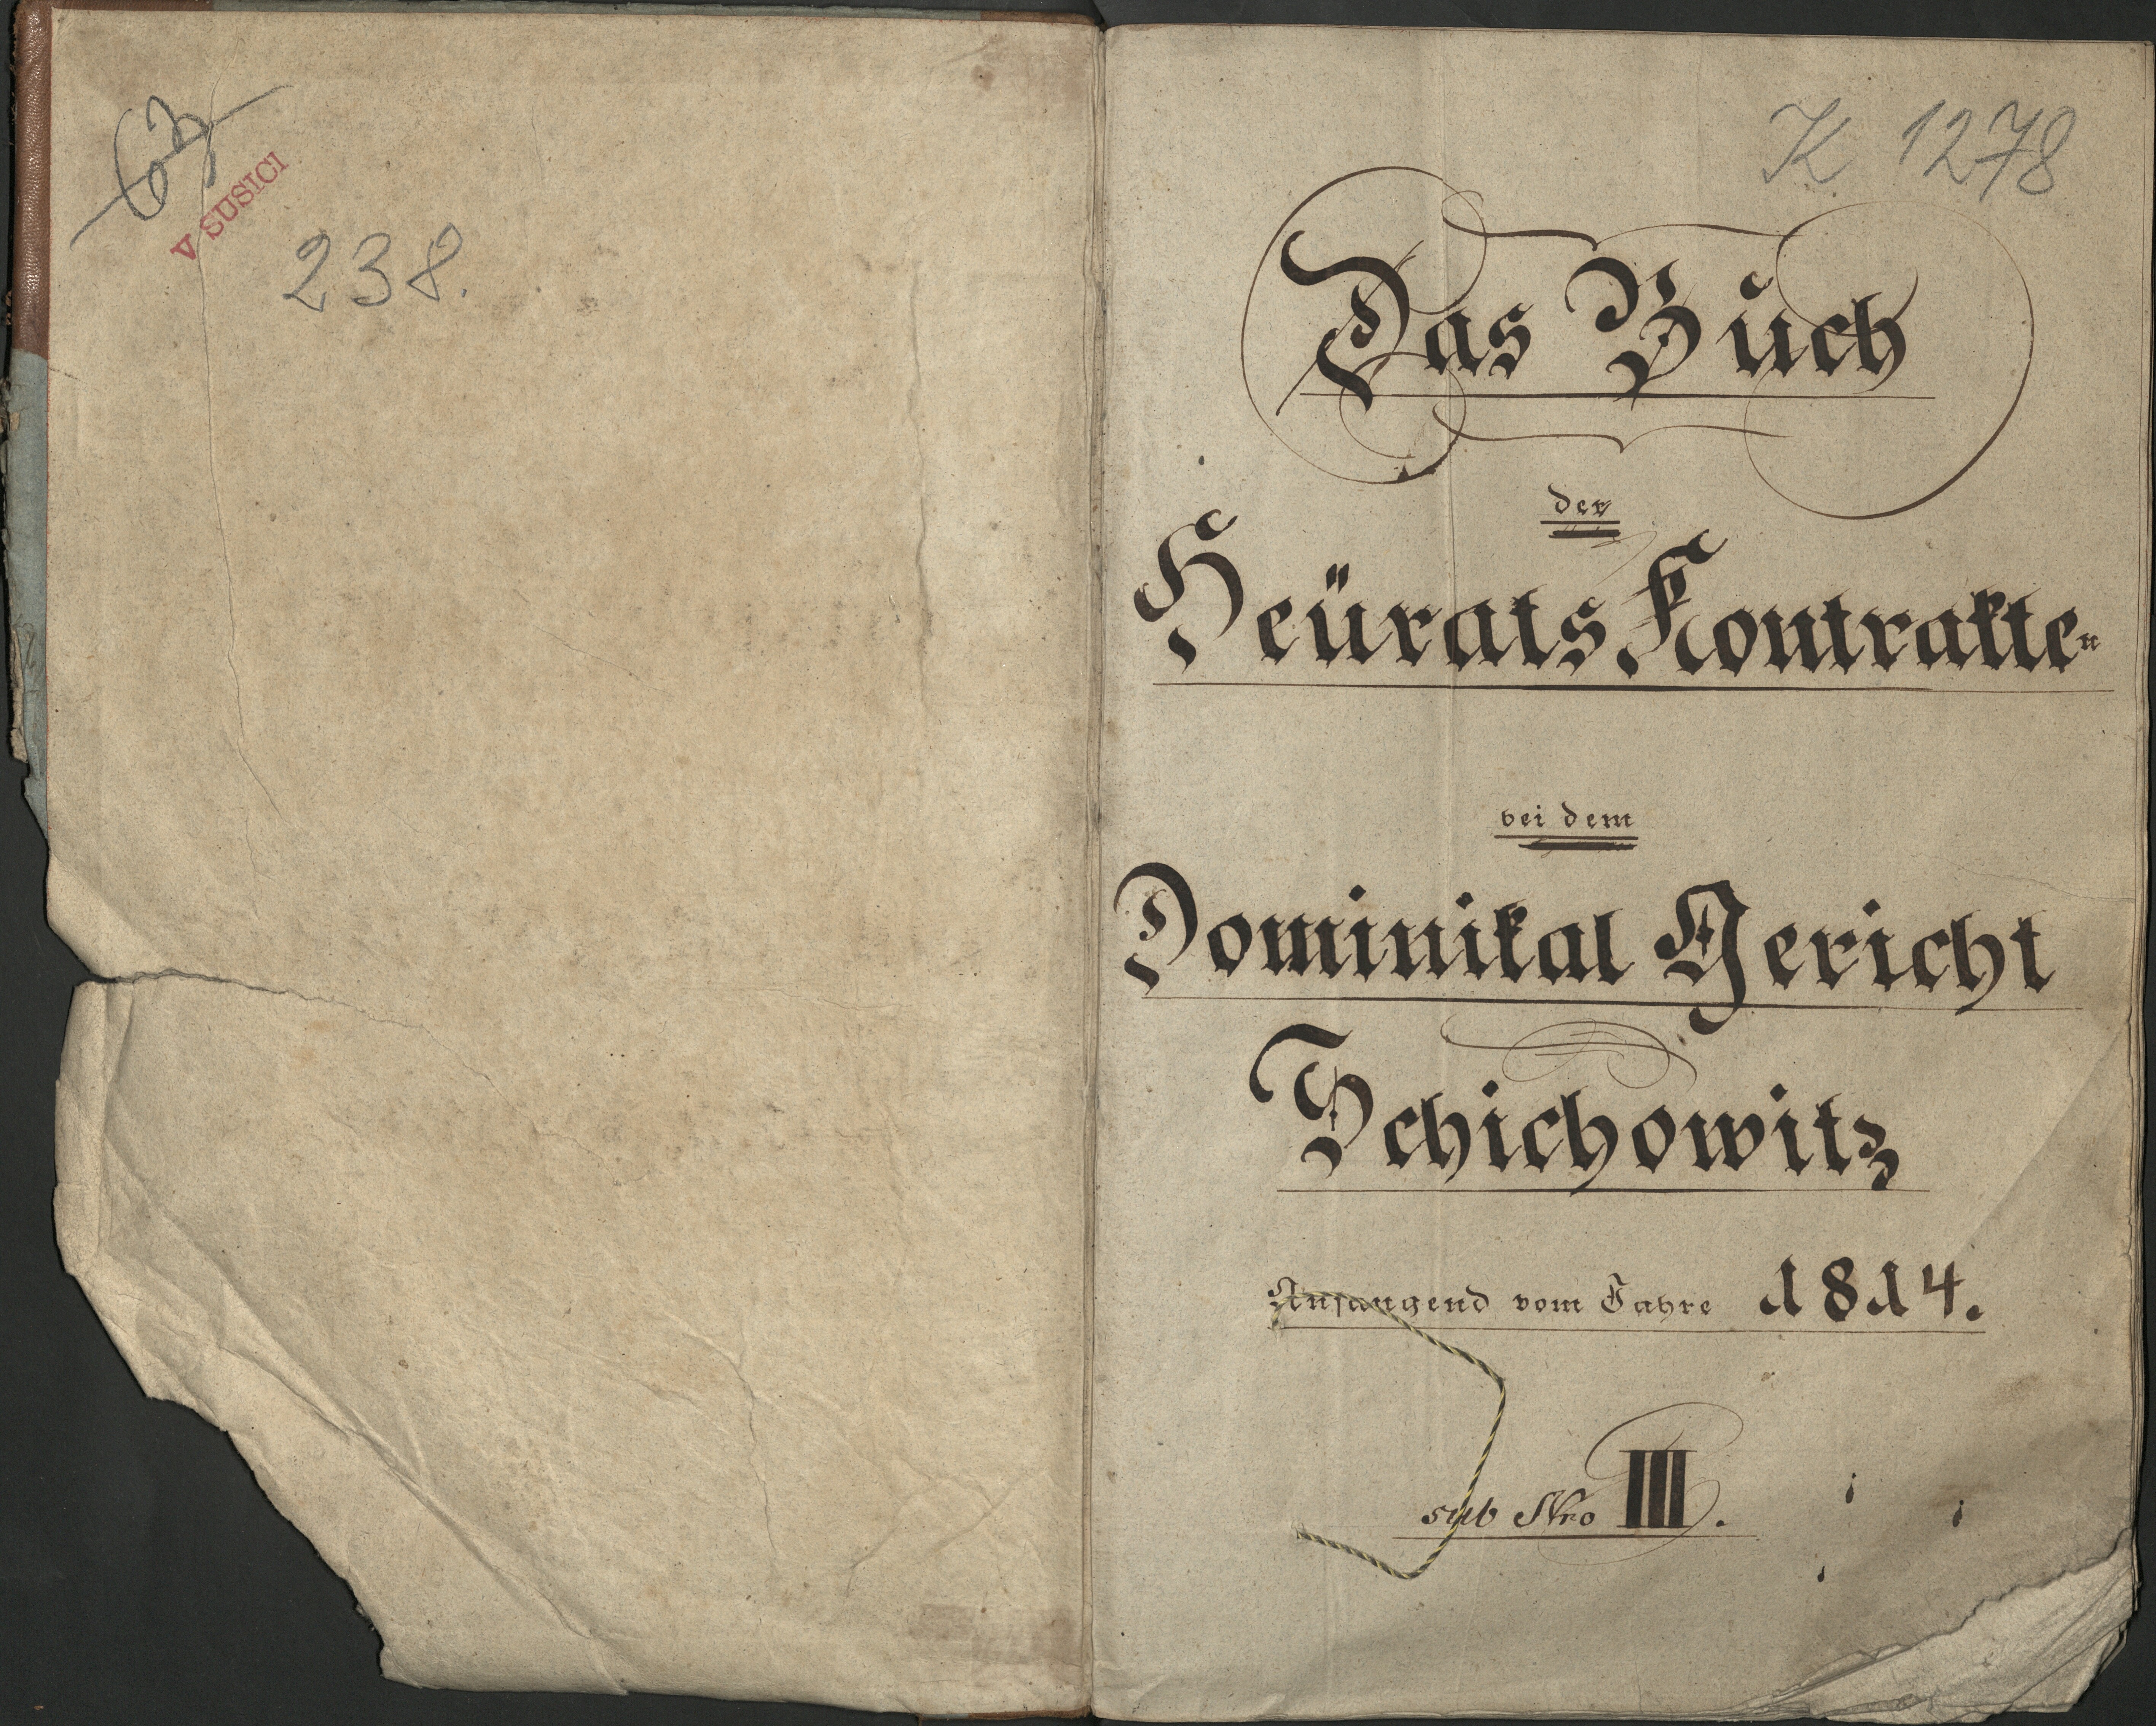 63
V SUSICI
238.
K 1278
Das Buch
der
Heürats Kontrakten
bei dem
Dominikal Gericht
Schichowitz
Anfangend vom Jahre 1814.
sub Nro III.